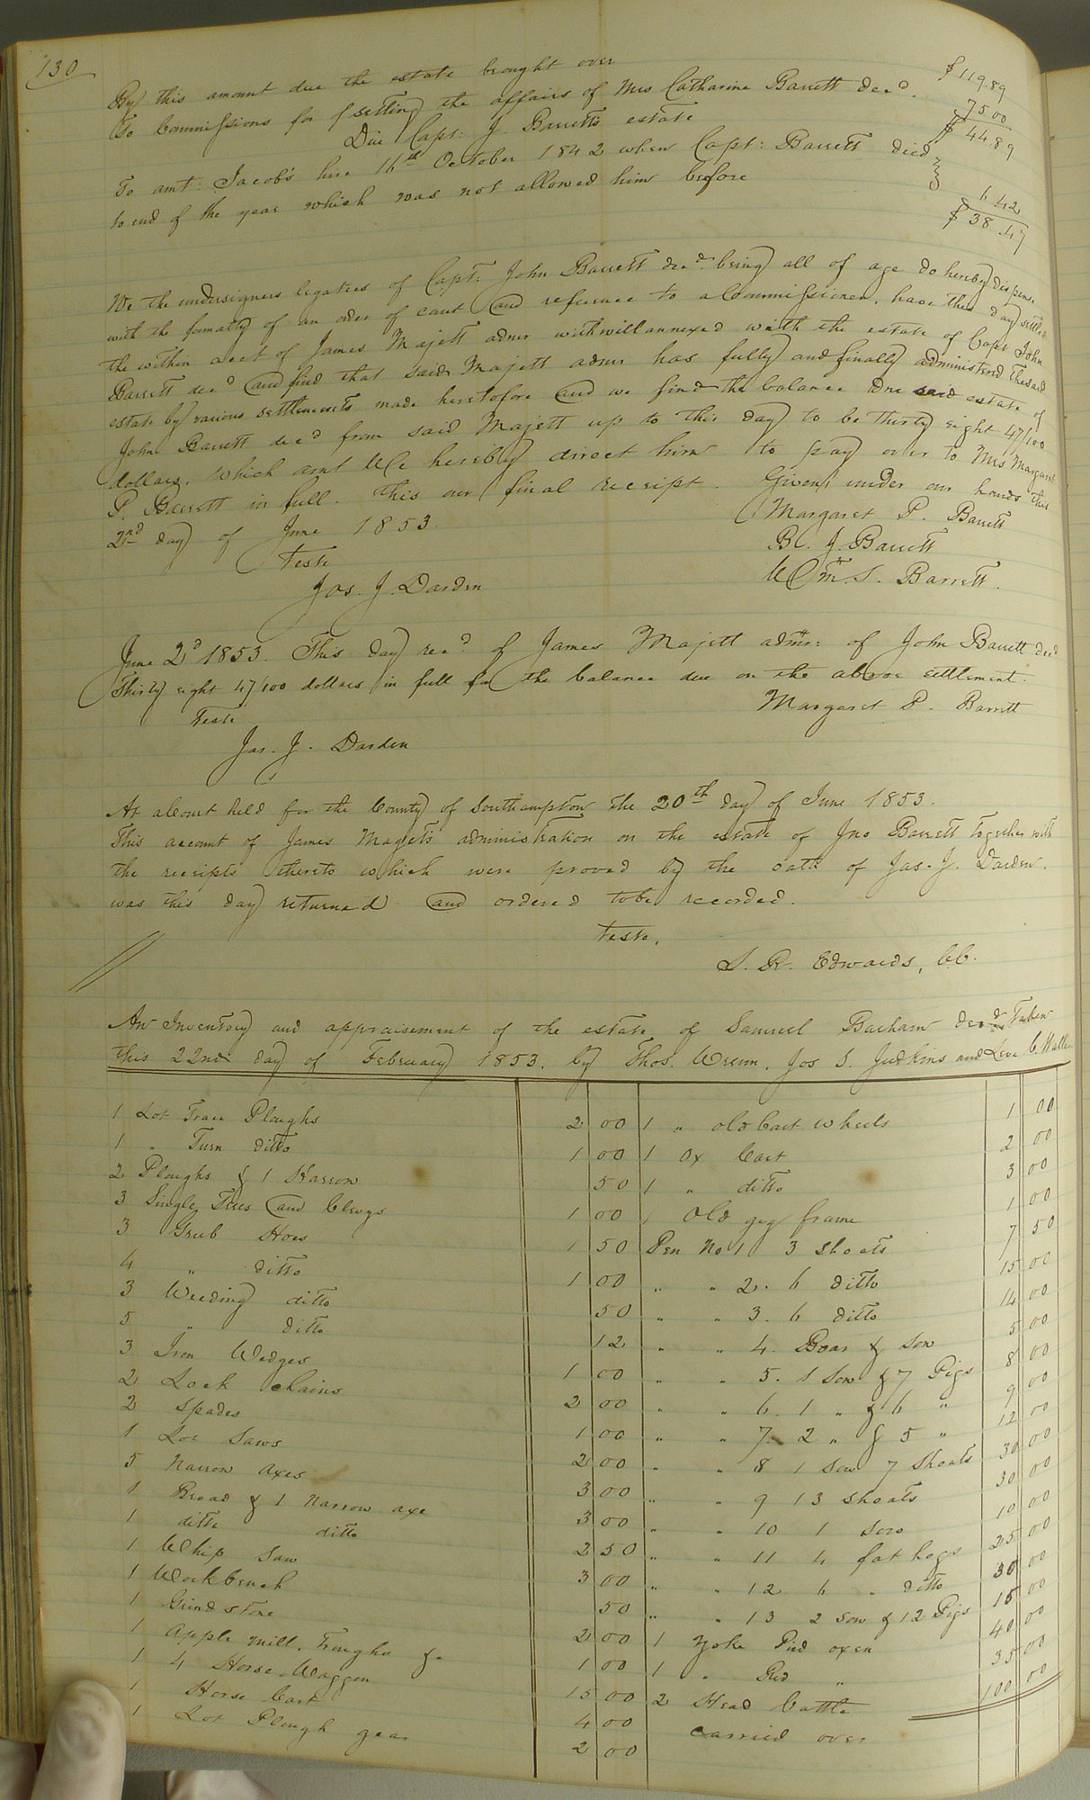 130
By this amount due the estate brought over $119.89
To Commissions for settling the affairs of Mrs Catharine Barrett decd. 75.00
Due Capt: J. Barretts estate $44.89
To amt: Jacobs hire 16th October 1842 when Capt: Barrett died
to end of the year which was not allowed him before 6.42
$38.47
We the undersigners legatees of Capt: John Barrett decd being all of age do hereby dispense
with the formality of an order of court and reference to a Commissioner, have this day settled
the within acct of James Majett admr with will annexed with the estate of Capt John
Barrett decd and find that said Majett admr has fully and finally administered the said
estate by various settlements made heretofore and we find the balance due said estate of
John Barrett decd from said Majett up to this day to be thirty eight 47/100
dollars, which amt We hereby direct him to pay over to Mrs Margaret
P. Barrett in full. this our final receipt. Given under our hands this
2nd day of June 1853.
Margaret P. Barrett
Teste
B. J. Barrett
Jos. J. Darden
Wm. S. Barrett.
June 2d 1853. This day recd of James Majett admr: of John Barrett decd
Thirty eight 47/100 dollars in full for the balance due on the above settlement.
Teste
Margaret P. Barrett
Jas. J. Darden
At a Court held for the County of Southampton the 20th day of June 1853.
This account of James Magets administration on the estate of Jno Barrett together with
the receipts thereto which were proved by the oath of Jas. J. Darden.
was this day returned and ordered to be recorded.
Teste,
L. R. Edwards, C.C.
An Inventory and appraisement of the estate of Samuel Barham decd Taken
this 22nd day of February 1853. by Thos. Wrenn, Jos S. Judkins and
1 Lot Trace Ploughs 2 00 1 " old Cart wheels 1 00
1 " Turn ditto 1 00 1 Ox Cart 2 00
2 Ploughs & 1 Harrow 50 1 " ditto 3 00
3 Single Trees and Clevys 1 00 1 Old gig frame 1 00
3 Grub Hoes 1 50 Pen No 1 3 Shoats 7 50
4 " ditto 1 00 " " 2. 6 ditto 15 00
3 Weeding ditto 50 " " 3. 6 ditto 14 00
5 " ditto 12 " " 4. Boar & Sow 5 00
3 Iron Wedges 1 00 " " 5. 1 Sow & 7 Pigs 8 00
2 Lock chains 2 00 " " 6. 1 " & 6 " 9 00
2 Spades 1 00 " " 7. 2 " & 5 " 12 00
1 Lot Saws 2 00 " " 8 1 Sow 7 Shoats 30 00
5 Narrow axes 3 00 " " 9 13 Shoats 30 00
1 Broad & 1 Narrow axe 3 00 " " 10 1 Sow 10 00
1 ditto ditto 2 50 " " 11 4 fat hogs 25 00
1 Whip Saw 3 00 " " 12 6 " ditto 30 00
1 Workbench 50 " " 13 2 Sow & 12 Pigs 15 00
1 Grindstone 2 00 1 Yoke Pied oxen 40 00
1 Apple Mill, Troughs &c 1 00 1 " Red " 35 00
1 4 Horse Waggon 15 00 2 Head Cattle 100 00
1 Horse Cart 4 00 carried over
1 Lot Plough gear 2 00